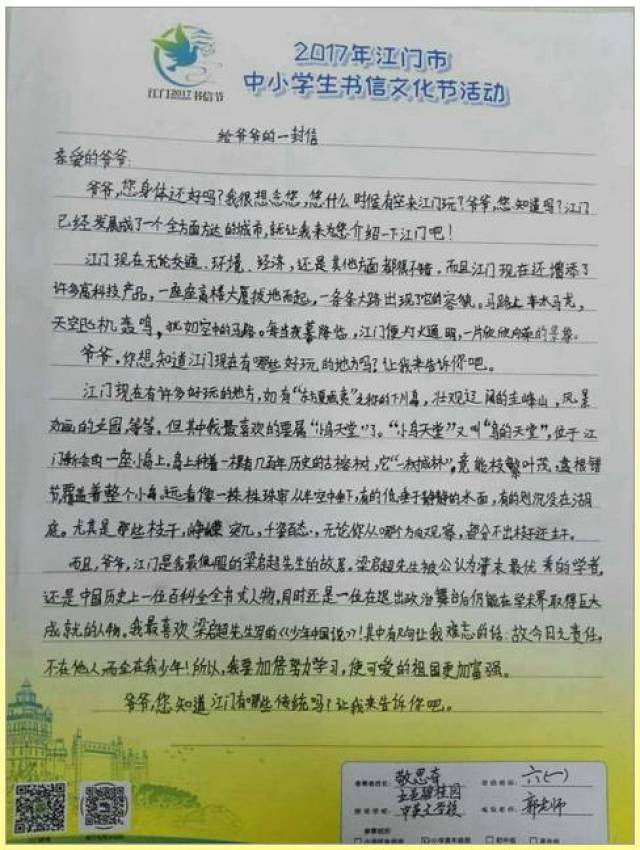 江门2017书信节
2017年江门市
中小学生书信文化节活动
给爷爷的一封信
亲爱的爷爷:
爷爷,您身体还好吗?我很想念您,您什么时候有空来江门玩?爷爷,您知道吗?江门
已经发展成了一个全方面方达的城市,就让我来为您介绍一下江门吧!
江门现在无论交通、环境、经济,还是其他方面都很不错,而且江门现在还增添了
许多高科技产品,一座座高楼大厦拔地而起,一条条大路出现了它的容貌。马路上车水马龙,
天空飞机轰鸣,犹如空中的马路。每当夜幕降临,江门便灯火通明,一片欣欣向荣的景象。
爷爷,你想知道江门现在有哪些好玩的地方吗?让我来告诉你吧。
江门现在有许多好玩的地方,如有“东方夏威夷”之称的下川岛,壮观辽阔的圭峰山,风景
如画的立园,等等。但其中我最喜欢的要属“小鸟天堂”了。“小鸟天堂”又叫“鸟的天堂”,位于江
门新会的一座小岛上,岛上种着一棵有几百年历史的古榕树,它“一树成林”,竟能枝繁叶茂,盘根错
节,覆盖着整个小岛。远看像一株株珠帘从半空中垂下,有的低垂于静静的水面,有的则沉没在湖
底。尤其是那些枝干,峥嵘突兀,千姿百态,无论你从哪个方向观察,都分不出枝干还主干。
而且,爷爷,江门是我最佩服的梁启超先生的故居。梁启超先生被公认为清末最优秀的学者,
还是中国历史上一位百科全全书式人物,同时还是一位在退出政治舞台后仍能在学术界取得巨大
成就的人物。我最喜欢梁启超先生写的《少年中国说》!其中有句让我难忘的话:故今日之责任,
不在他人而全在我少年!所以,我要加倍努力学习,使可爱的祖国更加富强。
爷爷,您知道江门有哪些传统吗?让我来告诉你吧。
敬思奇
六(一)
五邑碧桂园
中英文学校
郭老师